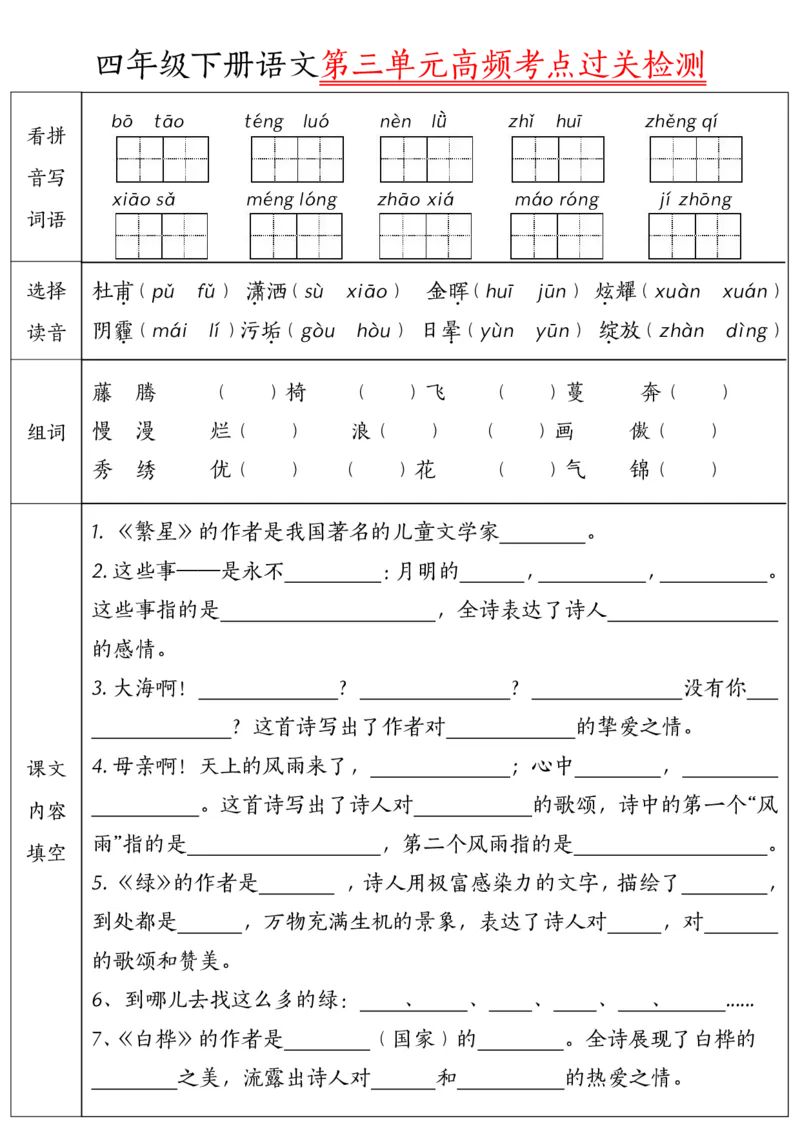 四年级下册语文第三单元高频考点过关检测
看拼音写词语
bō tāo téng luó nèn lǜ zhǐ huī zhěng qí
xiāo sǎ méng lóng zhāo xiá máo róng jí zhōng
选择读音
杜甫(pǔ fǔ) 潇洒(sù xiāo) 金晖(huī jūn) 炫耀(xuàn xuán)
阴霾(mái lí)污垢(gòu hòu) 日晕(yùn yūn) 绽放(zhàn dìng)
组词
藤 腾 ( )椅 ( )飞 ( )蔓 奔( )
慢 漫 烂( ) 浪( ) ( )画 傲( )
秀 绣 优( ) ( )花 ( )气 锦( )
课文内容填空
1. 《繁星》的作者是我国著名的儿童文学家________。
2.这些事——是永不_________:月明的______,__________,__________。
这些事指的是____________________,全诗表达了诗人________________
的感情。
3.大海啊!_____________?______________?______________没有你___
_____________?这首诗写出了作者对____________的挚爱之情。
4.母亲啊!天上的风雨来了,_____________;心中________,_________
__________。这首诗写出了诗人对___________的歌颂,诗中的第一个“风
雨”指的是__________________,第二个风雨指的是__________________。
5.《绿》的作者是_______ ,诗人用极富感染力的文字,描绘了________,
到处都是______,万物充满生机的景象,表达了诗人对_____,对_______
的歌颂和赞美。
6、到哪儿去找这么多的绿:____、_____、____、____、___、______......
7、《白桦》的作者是________(国家)的________。全诗展现了白桦的
________之美,流露出诗人对______和__________的热爱之情。